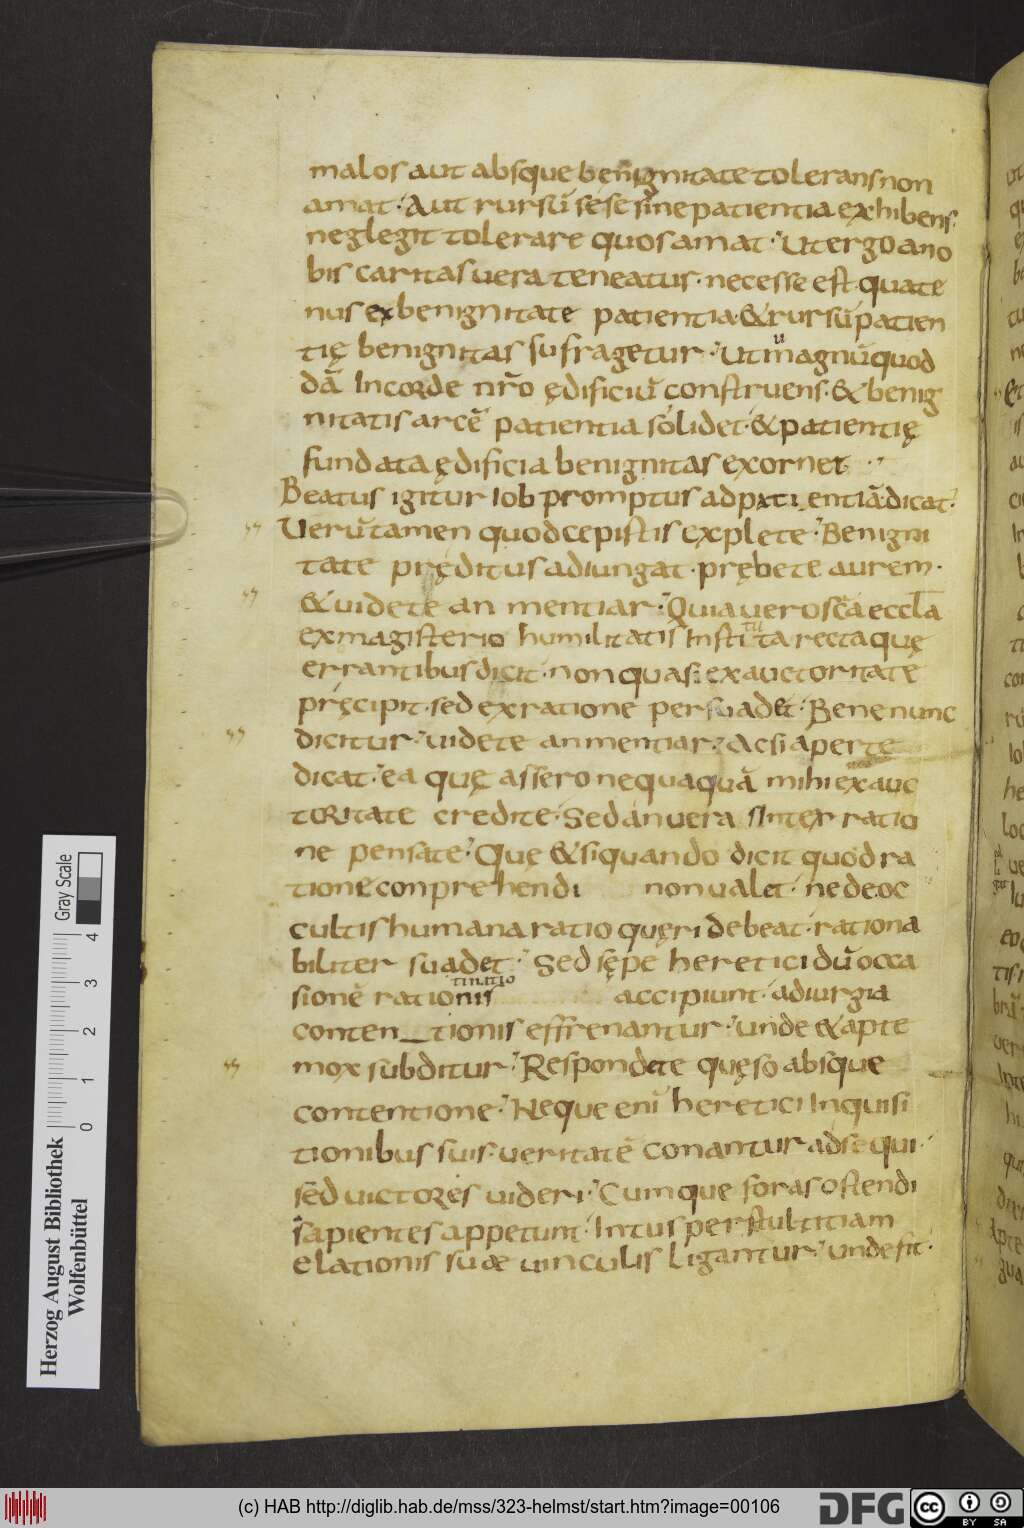 malos aut absque benignitate tolerans non
amat· Aut rursū sese sine patientia exhibens·
neglegit tolerare quos amat· Ut ergo a no
bis caritas vera teneatur· necesse est· quate
nus ex benignitate patientia· & rursū patien
tię benignitas suffragetur· Ut magnū quod
dā in corde nr̄o ędificiū construens· & benig
nitatis arcē patientia solidet· & patientię
fundata ędificia benignitas exornet·
Beatus igitur iob promptus ad patientiā dicat·
Uerūtamen quod cepistis explete· Benigni
tate pręditus adiungat· prębete aurem·
& uidete an mentiar· Quia uero sc̄a eccl̄a
ex magisterio humilitatis instituta recta quę
errantibus dicit· non quasi ex auctoritate
pręcipit· sed ex ratione persuadet· Bene nunc
dicitur· uidete an mentiar· Ac si aperte
dicat· ea quę assero nequaquā mihi ex auc
toritate credite· Sed an vera sint ex ratio
ne pensate· Quę & si quando dicit quod ra
tione conprehendi non ualet· ne de oc
cultis humana ratio quęri debeat· rationa
biliter suadet· Sed sępe heretici dū occa
sionē rationis tinitio accipiunt· ad iurgia
conten_tionis effrenantur· unde & apte
mox subditur· Respondete quęso absque
contentione· Neque enī heretici inquisi
tionibus suis· ueritatē conantur adsequi·
sed uictores uideri· Cumque foras ostendi
sapientes appetunt· Intus per stultitiam
elationis suae uinculis ligantur· unde fit·
Herzog August Bibliothek
Wolfenbüttel
Gray Scale
0 1 2 3 4
(c) HAB http://diglib.hab.de/mss/323-helmst/start.htm?image=00106
DFG
cc BY SA